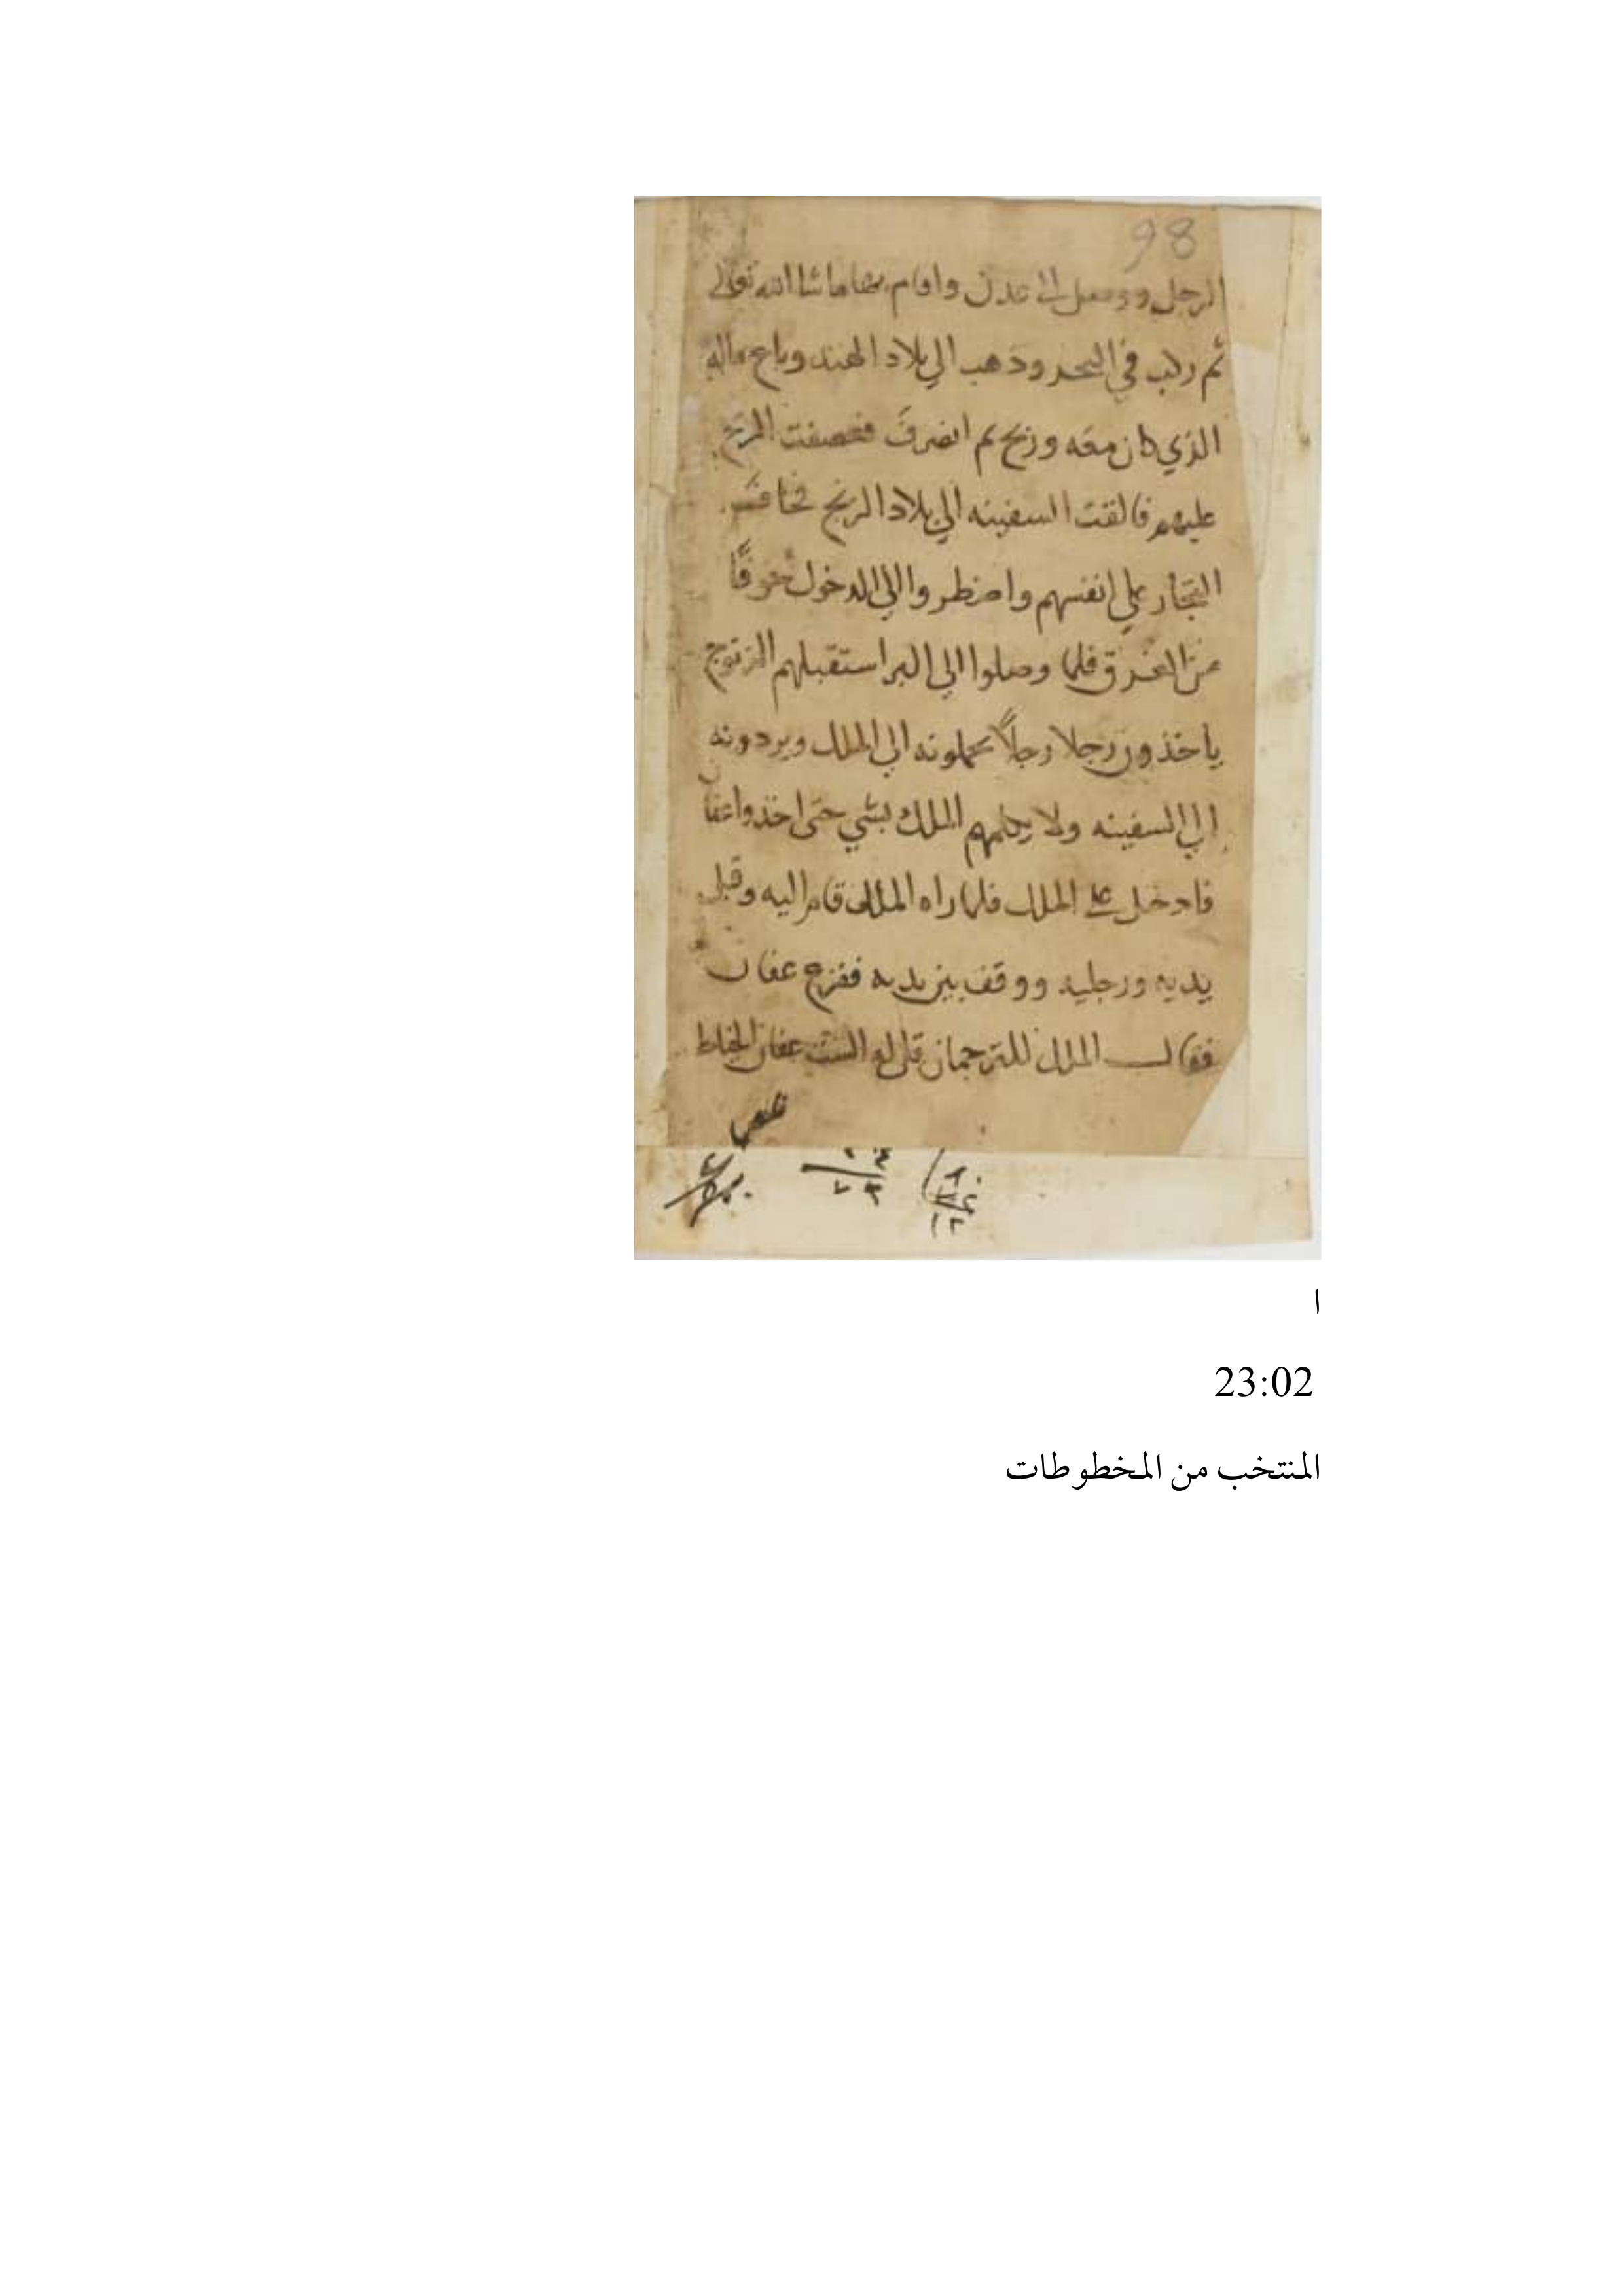 98
الرجل ووصل الى عدن واقام بها ما شا الله تعالى
ثم ركب في البحر ودهب الي بلاد الهند وباع ماله
الذي كان معه وربح ثم انصرفَ فعصفت الريح
عليهم فالقت السفينه الي بلاد الزنج فخافت
التجار علي انفسهم واضطروا الي الدخول خوفًا
من الغرق فلما وصلوا الي البر استقبلهم الزنوج
ياخذون رجلا رجلاً يحملونه الي الملك ويردونه
الي السفينه ولا يكلمهم الملك بشي حتى اخذوا عفان
فادخل على الملك فلما راه الملك قام اليه وقبل
يديه ورجليه ووقف بين يديه ففزع عفان
فقال الملك للترجمان قل له الست عفان الخياط
ا
23:02
المنتخب من المخطوطات